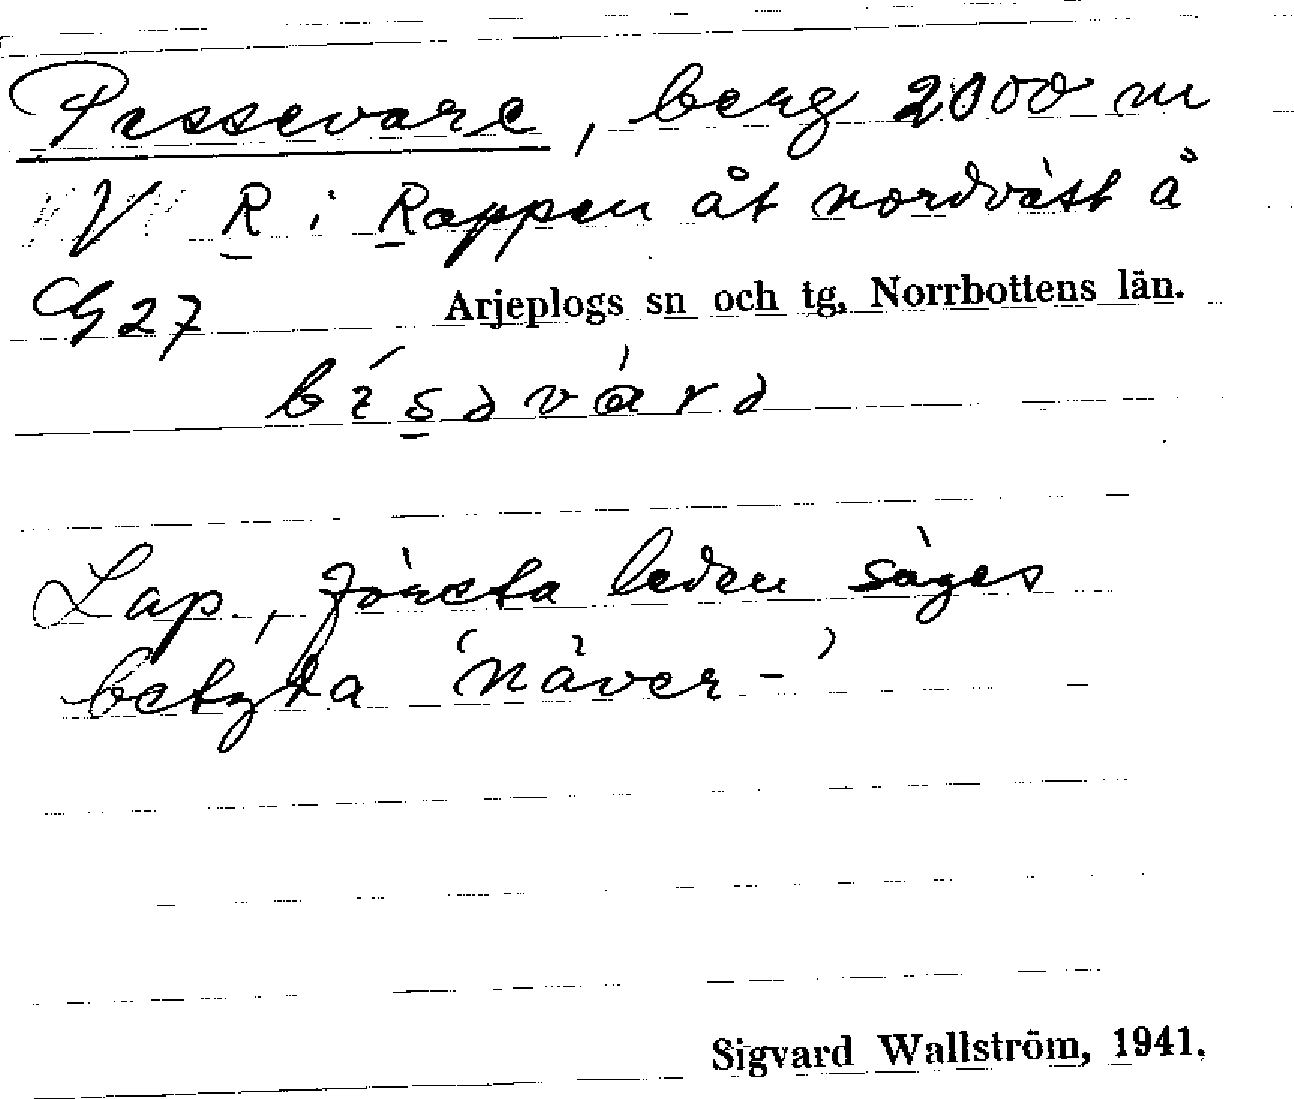 Pessevare, berg 2000 m
V R i Rappen åt nordväst å
G27 Arjeplogs sn och tg, Norrbottens län.
Lap., första leden säges
betyda 'näver-'
Sigvard Wallström, 1941.